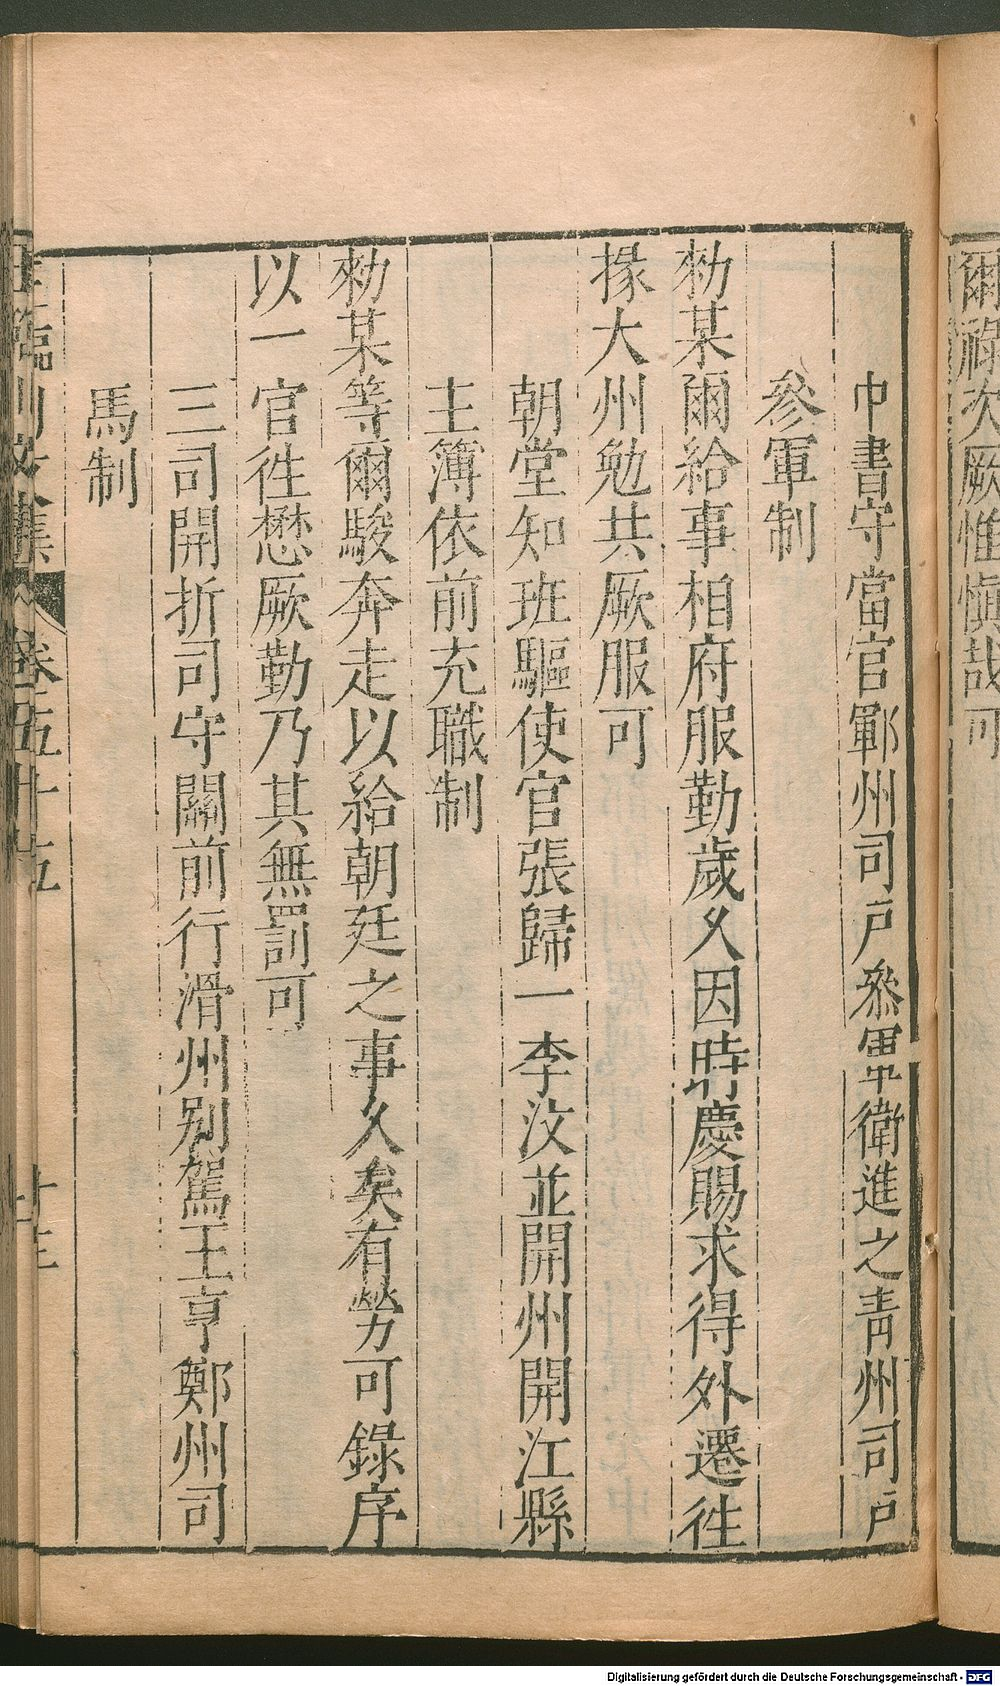 爾祿次厥惟慎哉可
中書守當官鄆州司戶叅軍衛進之青州司戶
參軍制
勑某爾給事相府服勤歲久因時慶賜求得外遷徃
掾大州勉共厥服可
朝堂知班驅使官張歸一李汶並開州開江縣
主簿依前充職制
勑某等爾駿奔走以給朝廷之事久矣有勞可錄序
以一官徃懋厥勤乃其無罰可
三司開折司守關前行滑州别駕王亨鄭州司
馬制
王臨川文集 卷五十五
Digitalisierung gefördert durch die Deutsche Forschungsgemeinschaft - DFG